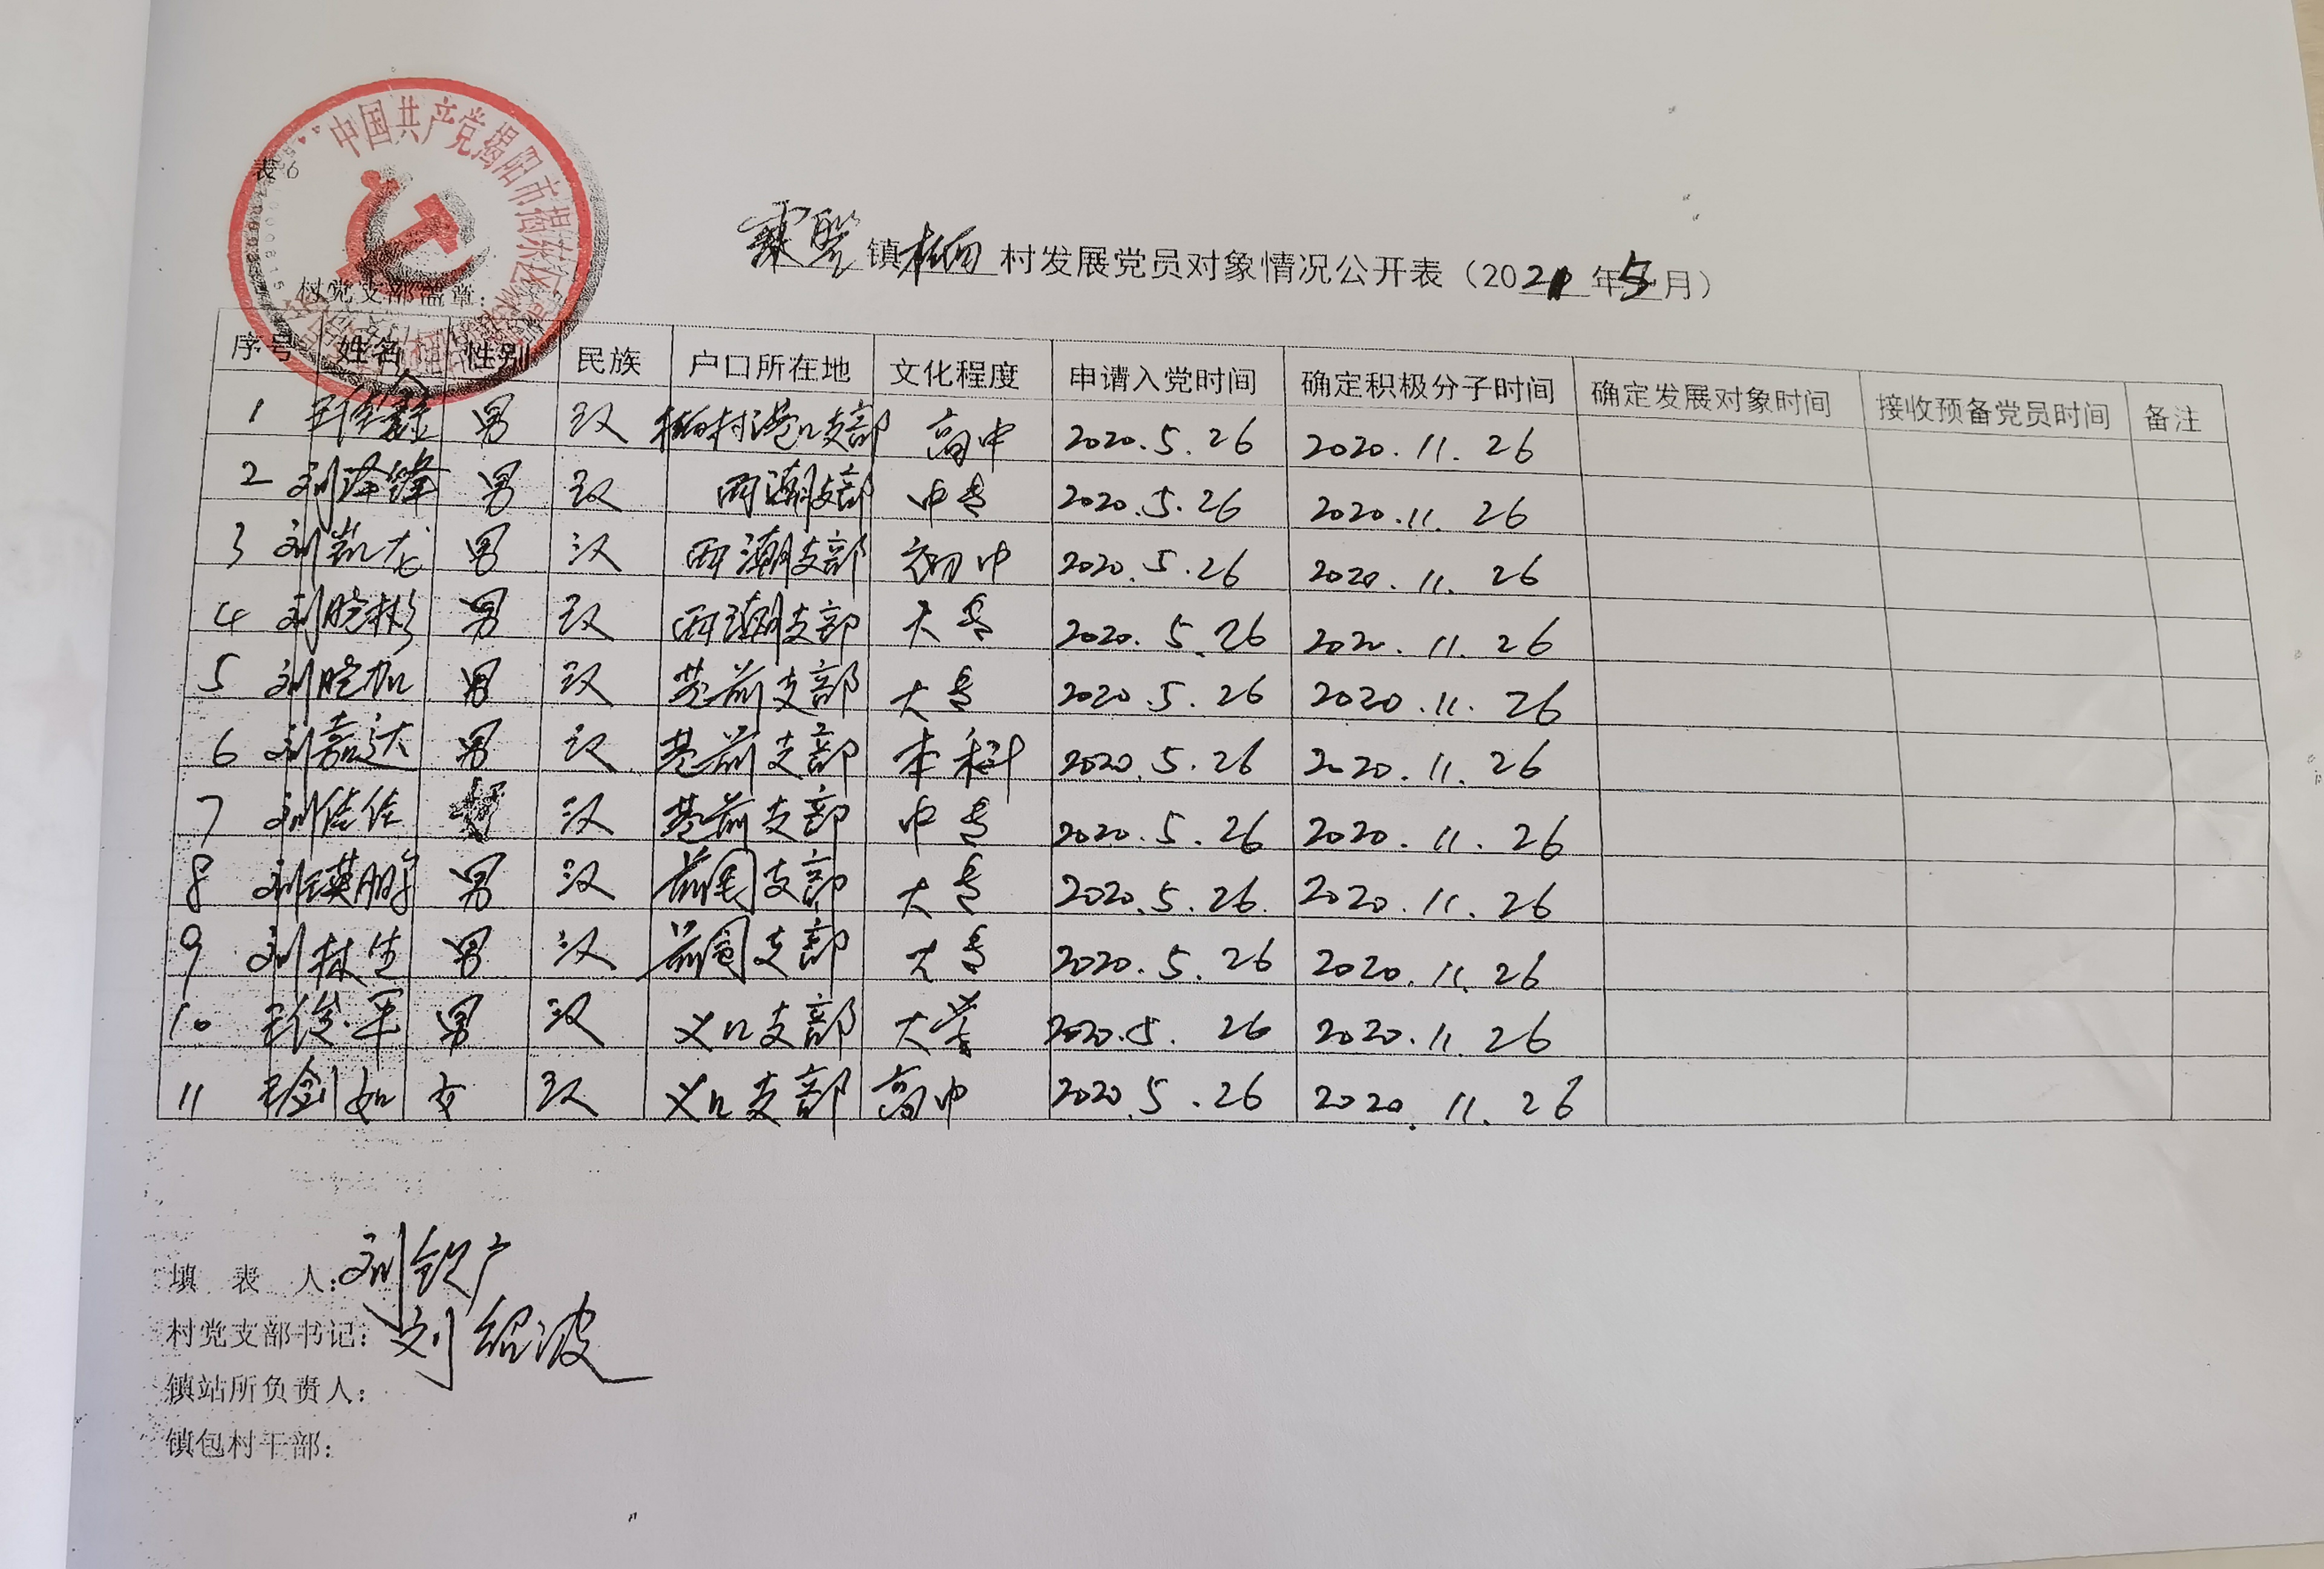 中国共产党揭阳市揭东区
表6
霖磐镇桥栢村发展党员对象情况公开表（2021年5月）
村党支部盖章：
序号 姓名 性别 民族 户口所在地 文化程度 申请入党时间 确定积极分子时间 确定发展对象时间 接收预备党员时间 备注
1 男 汉 港口支部 高中 2020.5.26 2020.11.26
2 刘泽锋 男 汉 西潮支部 中专 2020.5.26 2020.11.26
3 刘凯龙 男 汉 西潮支部 初中 2020.5.26 2020.11.26
4 刘晓彬 男 汉 西潮支部 大专 2020.5.26 2020.11.26
5 刘晓加 男 汉 前支部 大专 2020.5.26 2020.11.26
6 刘嘉达 男 汉 前支部 本科 2020.5.26 2020.11.26
7 刘佳佳 汉 前支部 中专 2020.5.26 2020.11.26
8 刘瑛鹏 男 汉 支部 大专 2020.5.26 2020.11.26
9 刘林生 男 汉 支部 大专 2020.5.26 2020.11.26
10 王俊平 男 汉 义口支部 大学 2020.5.26 2020.11.26
11 王剑如 女 汉 义口支部 高中 2020.5.26 2020.11.26
填表人：刘
村党支部书记：刘绍波
镇站所负责人：
镇包村干部：